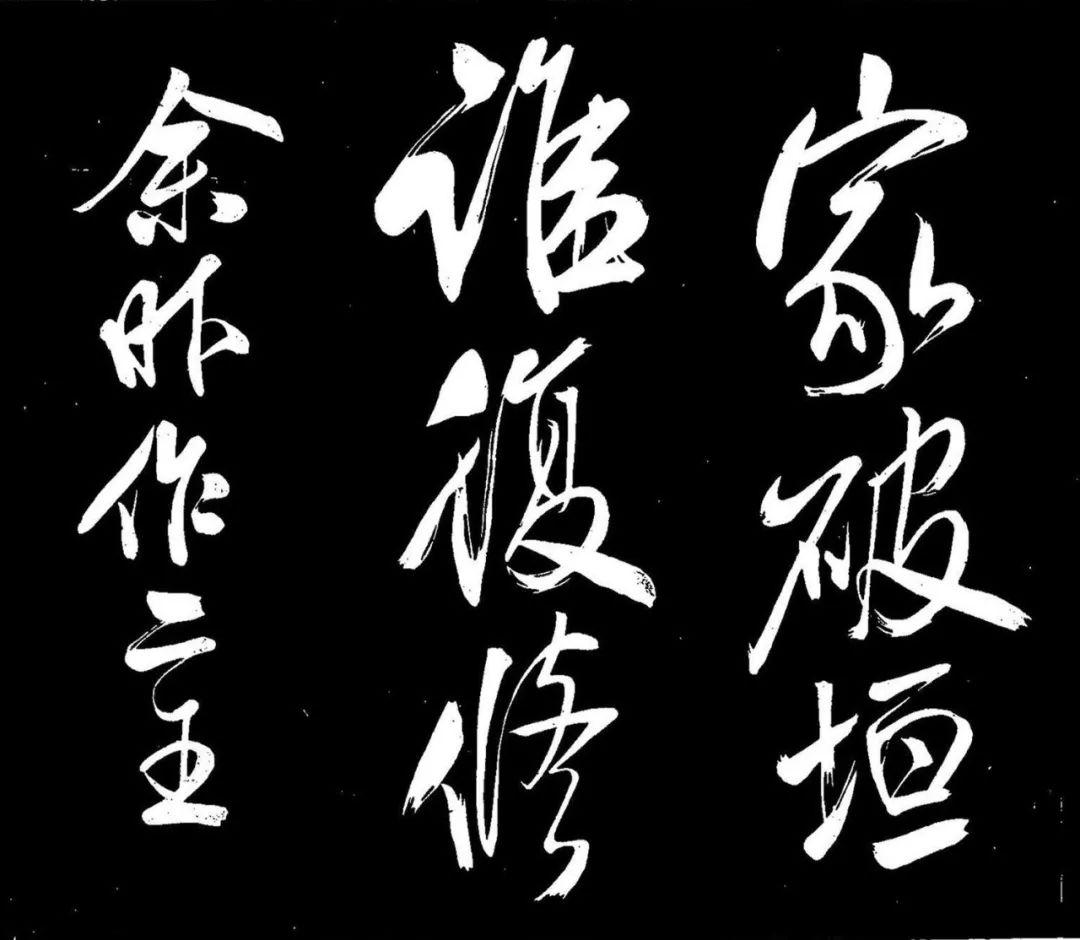 家破垣
誰復修
余昨作二王